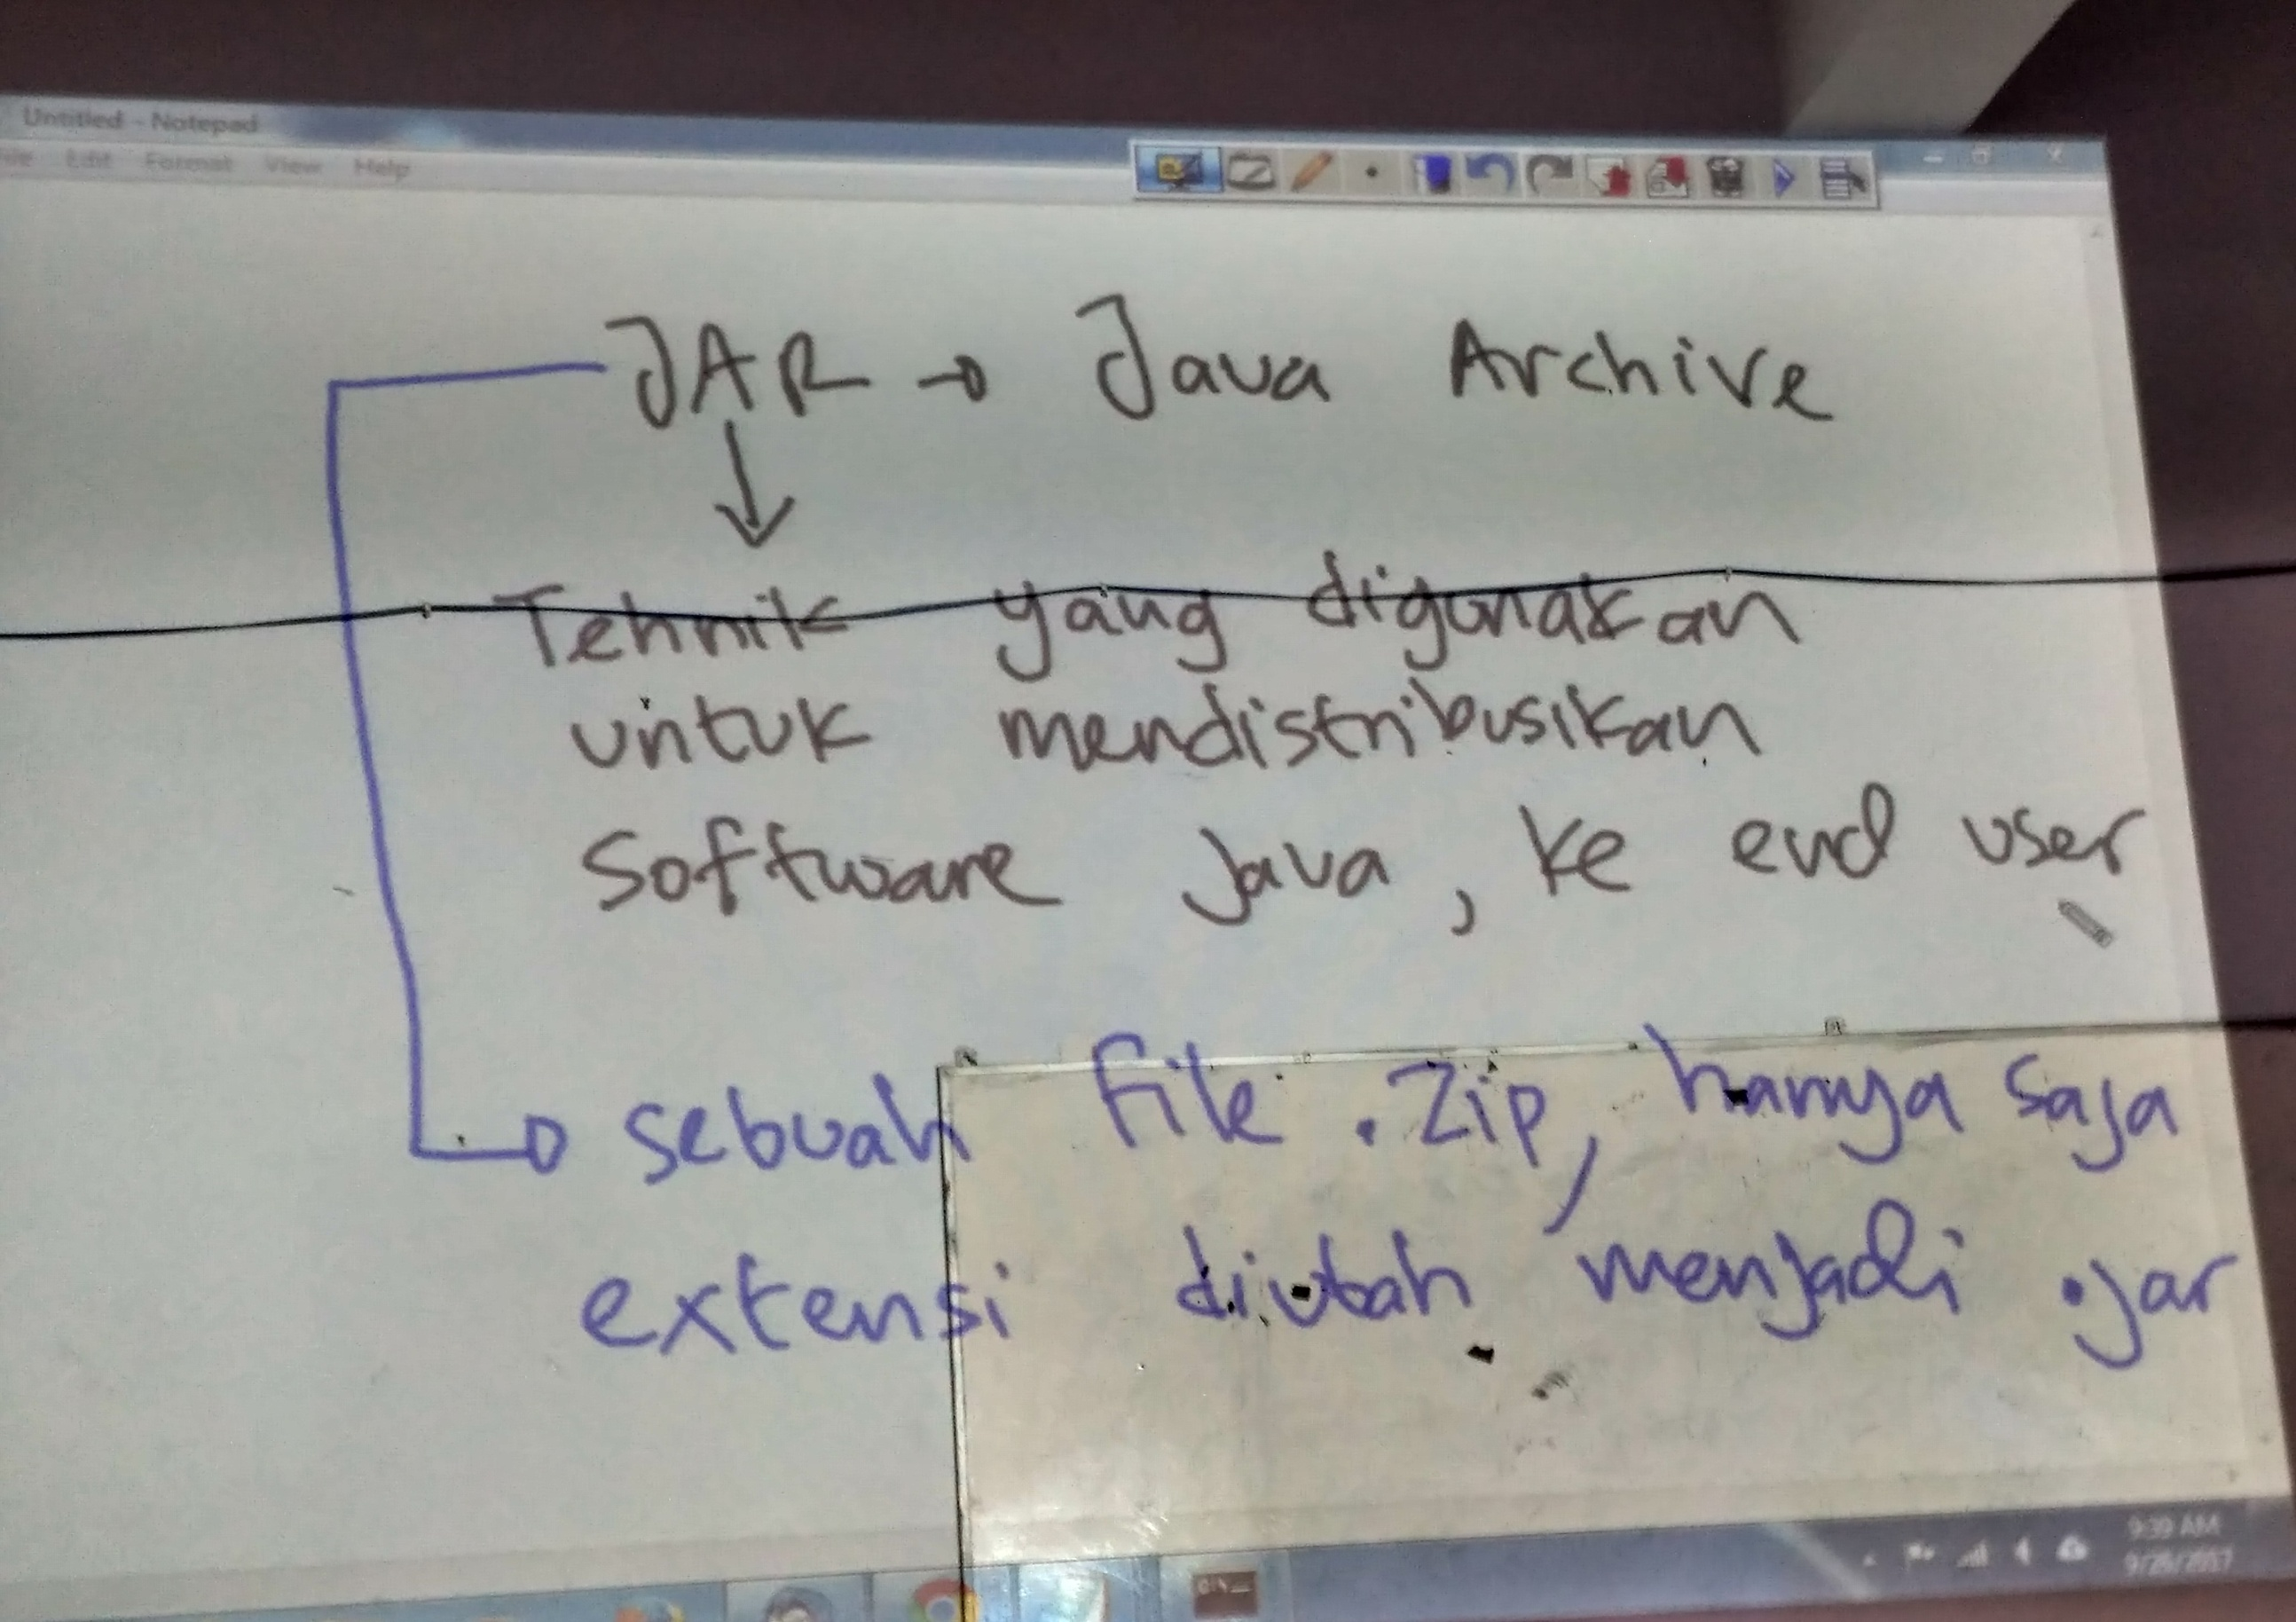 Untitled - Notepad
Edit Format View Help
JAR → Java Archive
Tehnik yang digunakan
untuk mendistribusikan
Software Java, ke end user
sebuah file .zip, hanya saja
extensi diubah menjadi .jar
9:39 AM